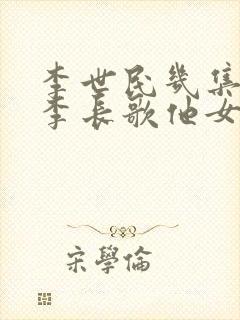 李世民幾集
李長歌他女
宋學倫